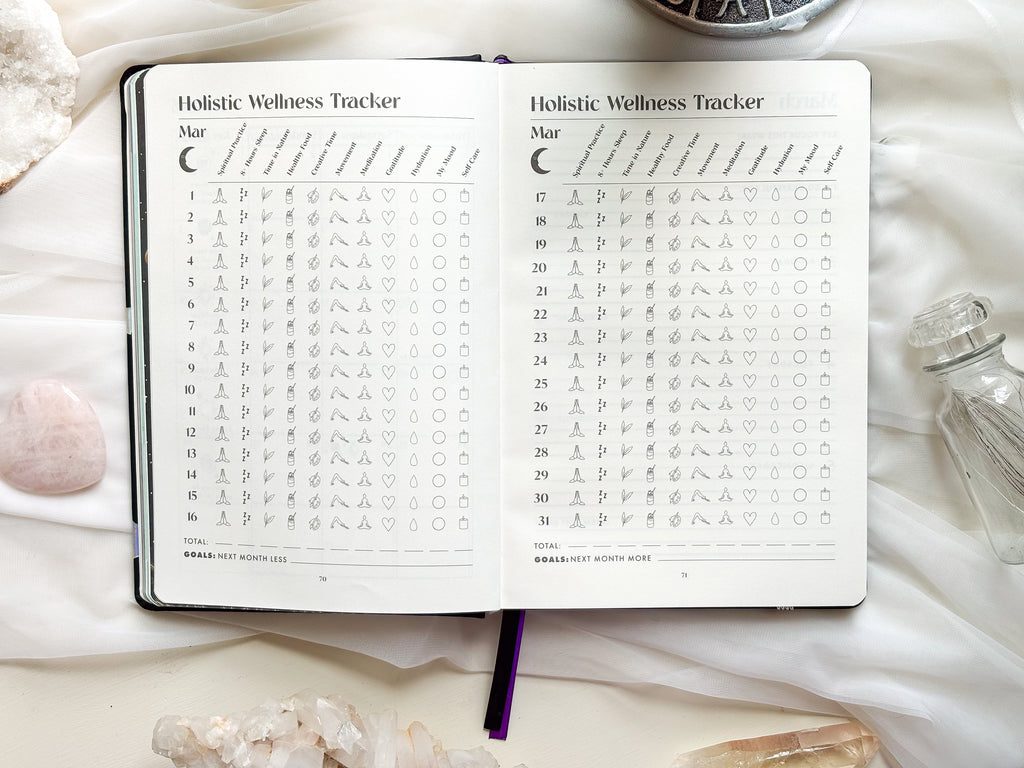 Holistic Wellness Tracker
Mar
Spiritual Practice
8+ Hours Sleep
Time in Nature
Healthy Food
Creative Time
Movement
Meditation
Gratitude
Hydration
My Mood
Self Care
1
2
3
4
5
6
7
8
9
10
11
12
13
14
15
16
TOTAL:
GOALS: NEXT MONTH LESS
70
Holistic Wellness Tracker
Mar
Spiritual Practice
8+ Hours Sleep
Time in Nature
Healthy Food
Creative Time
Movement
Meditation
Gratitude
Hydration
My Mood
Self Care
17
18
19
20
21
22
23
24
25
26
27
28
29
30
31
TOTAL:
GOALS: NEXT MONTH MORE
71